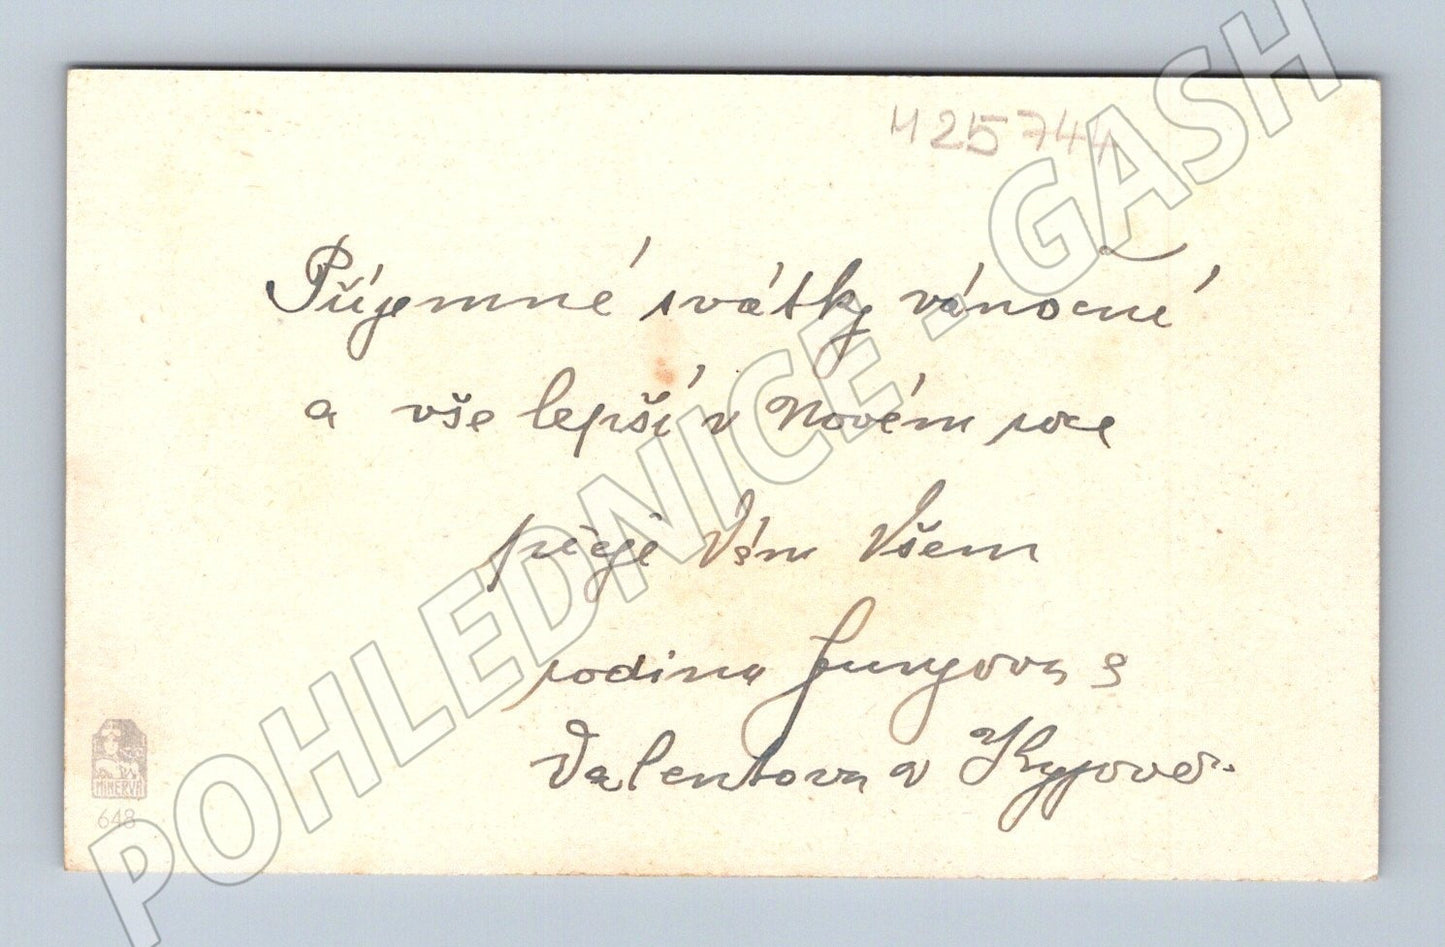 425744
Příjemné svátky vánoční
a vše lepší v Novém roce
přeje Vám Všem
rodina
Valentova v Kyjově.
MINERVA
648
POHLEDNICE - GASH